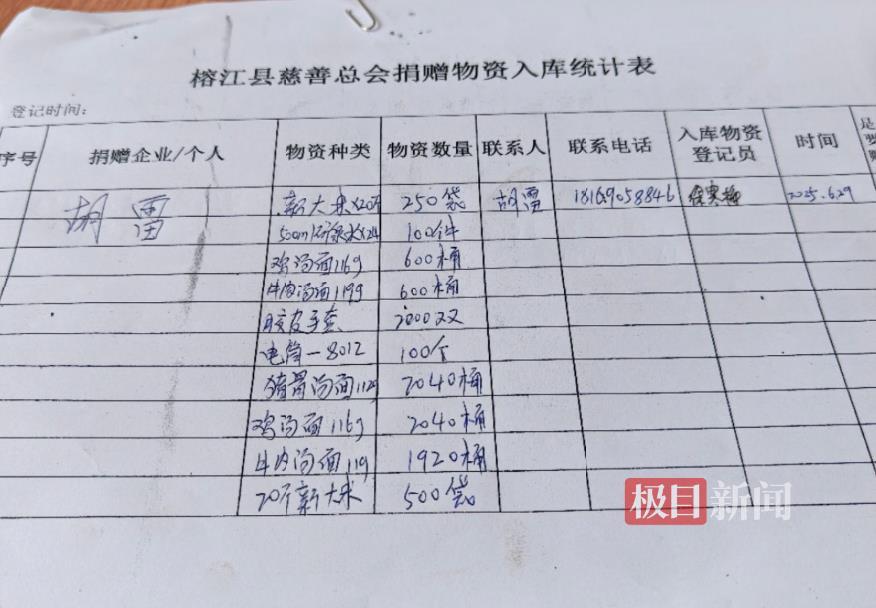 榕江县慈善总会捐赠物资入库统计表
登记时间：
序号 捐赠企业/个人 物资种类 物资数量 联系人 联系电话 入库物资登记员 时间
胡雷 新大米×20斤 250袋 胡雷 18169058846 2025.6.29
500ml 水×24 100件
鸡汤面116g 600桶
牛肉汤面119g 600桶
胶皮手套 2000双
电筒-8012 100个
猪骨汤面112g 2040桶
鸡汤面116g 2040桶
牛肉汤面119 1920桶
20斤新大米 500袋
极目新闻